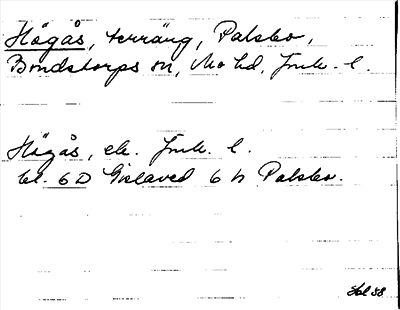 Högås, terräng, Palsbo,
Bondstorps sn, Mo hd, Jmk. l.
Högås, ek. Jmk. l.
bl. 6D Gislaved 6 h Palsbo.